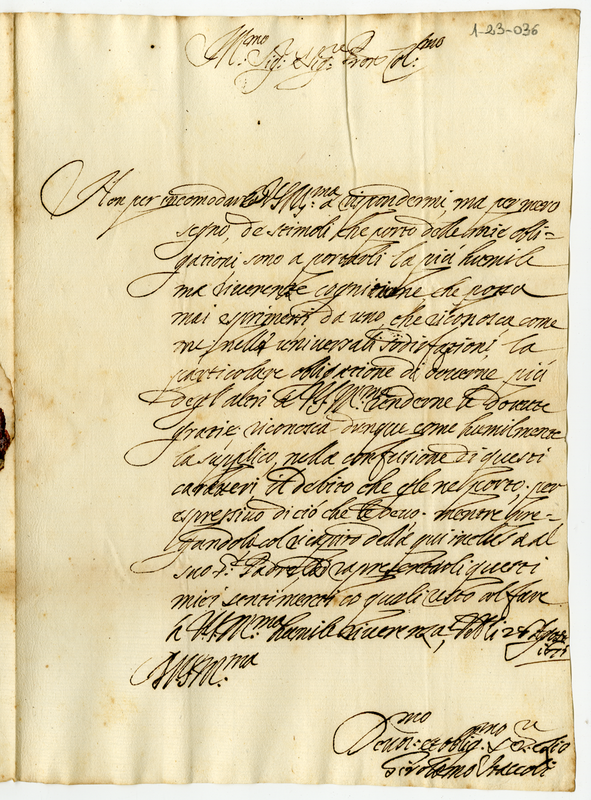 1-23-036
Ill.mo Sig.r e Sig.r Pron Col.mo
Non per incomodare V.S. Ill.ma a rispondermi, ma per mero
segno, de stimoli, che porto delle mie obli-
gationi sono a portarli la più humile
ma riverente cognitione che possa
mai esprimersi da uno, che riconosca come
me nelle universali sodisfazioni la
particolare obligatione di doverne più
degl'altri a V.S. Ill.ma renderne le dovute
gratie riconosca dunque come humilmente
la supplico, nella confusione di questi
caratteri il debito che gle ne porto per
espressivo di ciò che le devo. mentre pre-
gandola col ricapito della qui inclusa al
suo S.r Padre a rapresentarli questi
miei sentimenti co quali resto col fare
a V.S. Ill.ma humile riverenza, li 28
Di V.S. Ill.ma
Devot.mo et oblig.mo Ser.re
Girolamo